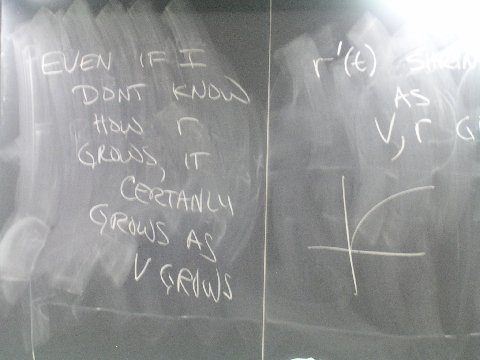 EVEN IF I
DONT KNOW
HOW r
GROWS, IT
CERTANLY
GROWS AS
V GROWS
r'(t)
AS
V, r G